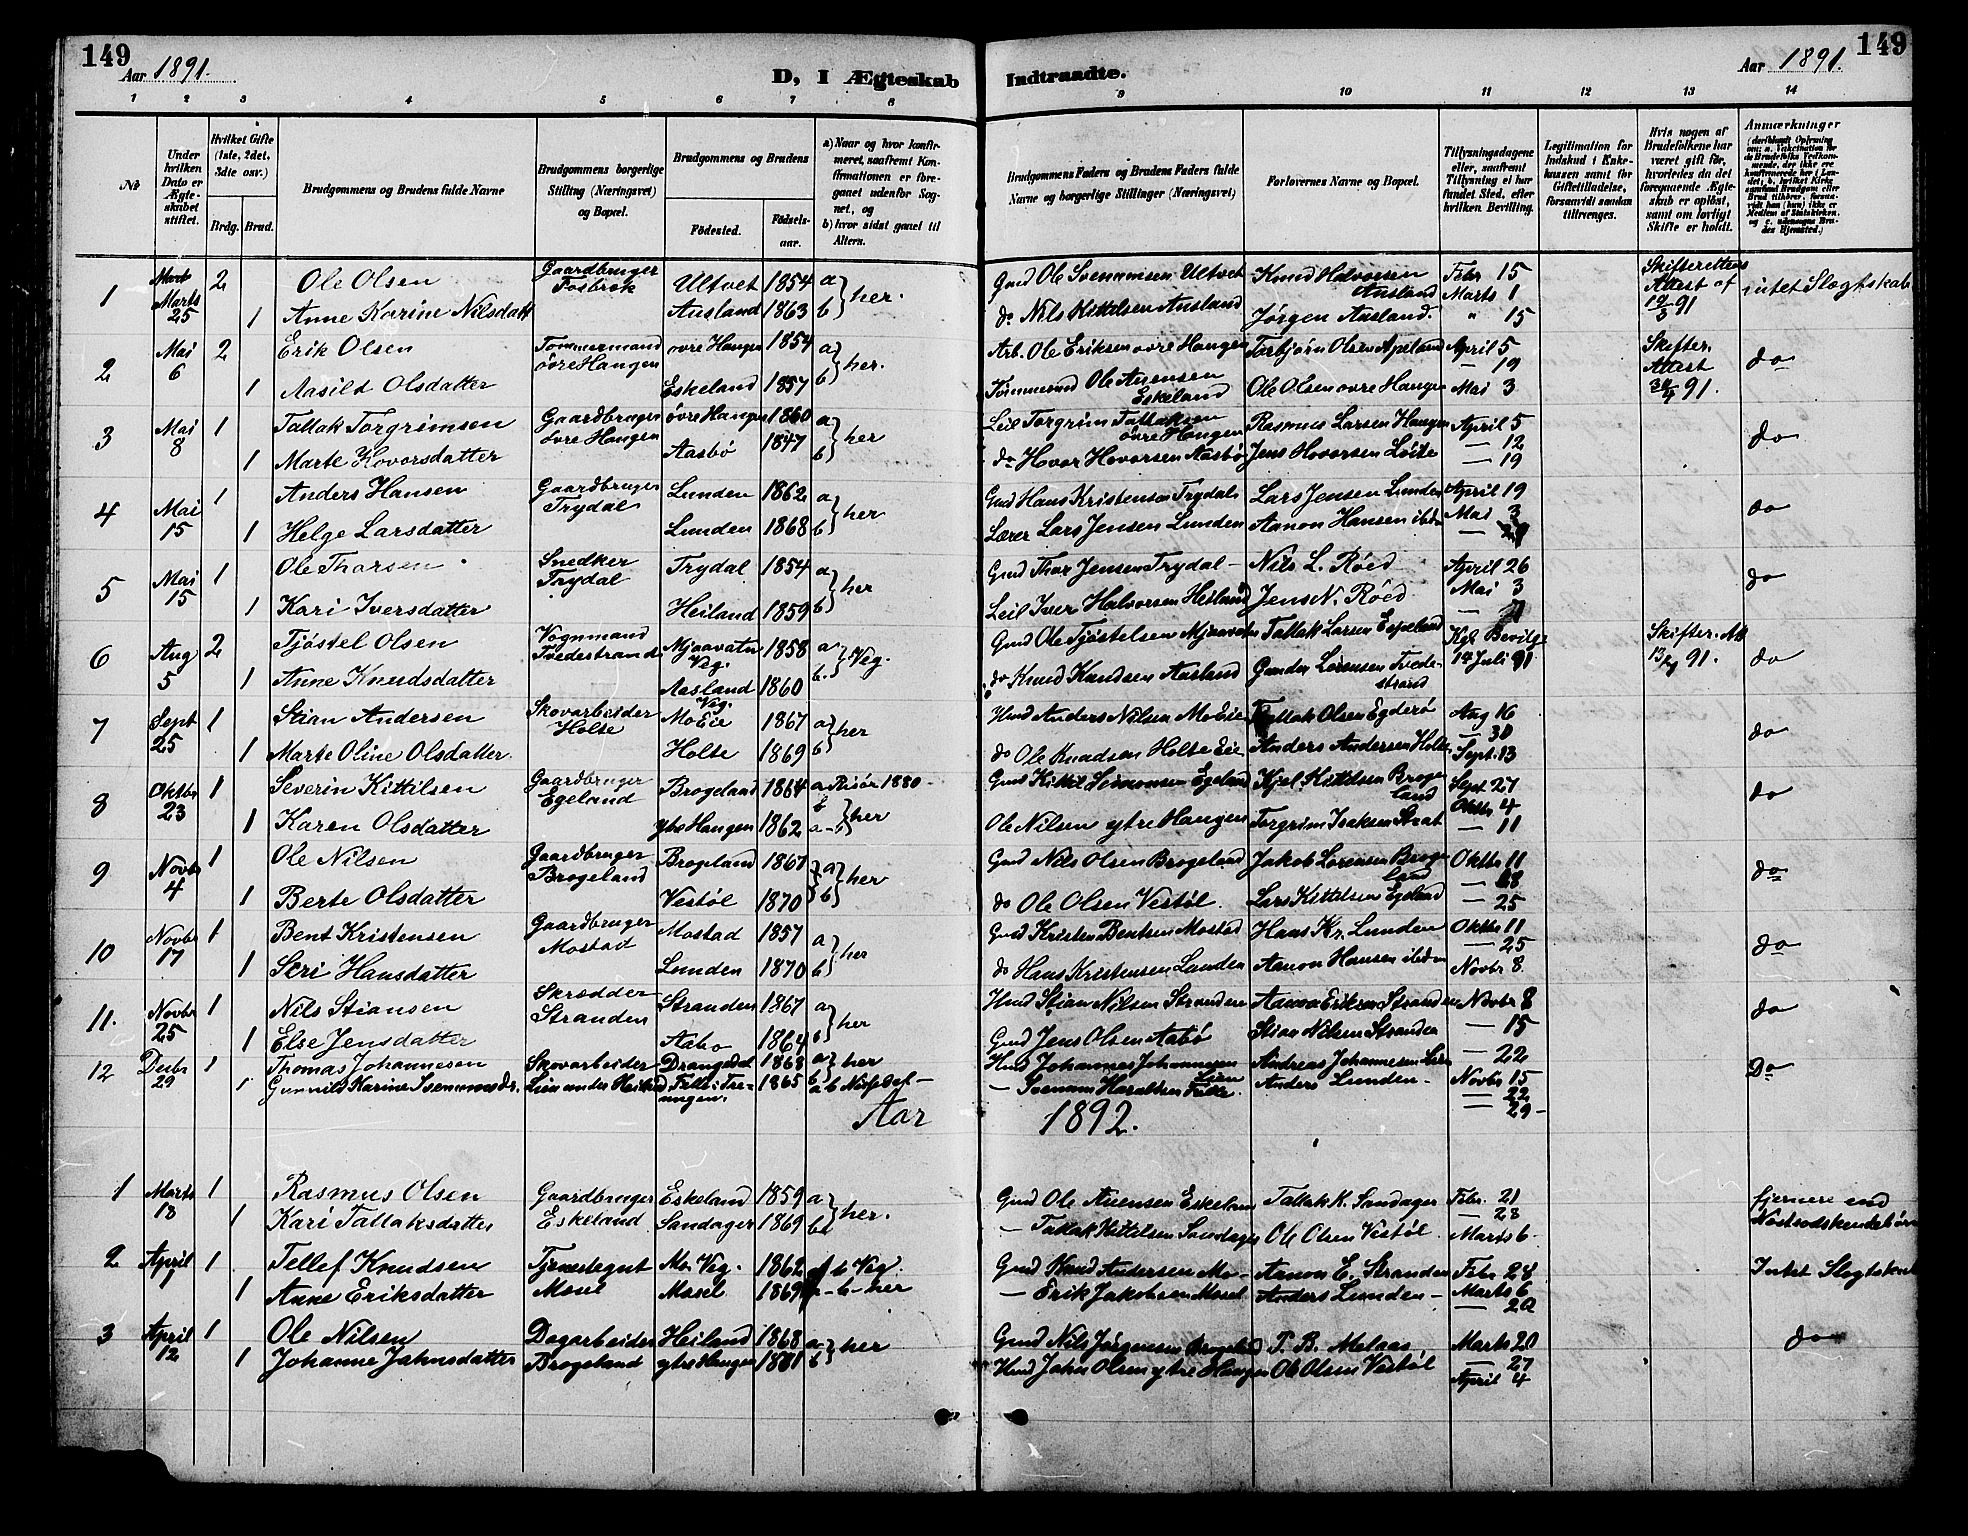 149
Aar 1891.
D, I Ægteskab
Indtraadte.
Aar 1891.
149
1 2 3 4 5 6 7 8 9 10 11 12 13 14
No
Under hvilken Dato er Ægteskabet stiftet.
Hvilket Gifte (1ste, 2det, 3die osv.)
Brdg. Brud.
Brudgommens og Brudens fulde Navne
Brudgommens borgerlige Stilling (Næringsvei) og Bopæl.
Brudgommens og Brudens
Fødested.
Fødselsaar.
a) Naar og hvor konfirmeret, saafremt Konfirmationen er foregaaet udenfor Sognet, og
b) hvor sidst gaaet til Alters.
Brudgommens Faders og Brudens Faders fulde Navne og borgerlige Stillinger (Næringsvei)
Forlovernes Navne og Bopæl.
Tillysningsdagene eller, saafremt Tillysning ei har fundet Sted, efter hvilken Bevilling.
Legitimation for Indskud i Enkekassen samt for Giftetilladelse, forsaavidt saadan tiltrænges.
Hvis nogen af Brudefolkene har været gift før, hvorledes da det foregaaende Ægteskab er opløst, samt om lovligt Skifte er holdt.
Anmærkninger
1 Marts 25 2 Ole Olsen Gaardbruger Fosbrok Ultvet 1854 a } her. Gmd Ole Svenumsen Ultvet Knud Halvorsen Ausland Febr 15 Skifterettens Attest af 19/3 91 intet Slegtskab
1 Anne Karine Nilsdatt Ausland 1863 b do Nils Kittilsen Ausland Jørgen Ausland. Marts 1 " 15
2 Mai 6 2 Erik Olsen Tømmermand øvre Hangen øvre Hangen 1854 a } her. Arb. Ole Eriksen øvre Hangen Torbjørn Olsen Apeland April 5 — 19 Skifter. Attest 30/4 91. do
1 Aasild Olsdatter Eskeland 1857 b Tømmermd Ole Auensen Eskeland Ole Olsen øvre Hangen Mai 3
3 Mai 8 1 Tallak Torgrimsen Gaardbruger øvre Hangen øvre Hangen 1860 a } her Leil Torgrim Tallaksen øvre Hangen Rasmus Larsen Hangen April 5 — 12 do
1 Marte Hovorsdatter Aasbø 1847 b do Hovor Hovorsen Aasbø Jens Hovorsen Løite — 19
4 Mai 15 1 Anders Hansen Gaardbruger Trydal Lunden 1862 a } her Gmd Hans Kristensen Trydal Lars Jensen Lunden April 19 do
1 Helge Larsdatter Lunden 1868 b Lærer Lars Jensen Lunden Aanon Hansen ibdm Mai 3
5 Mai 15 1 Ole Thorsen Snedker Trydal Trydal 1854 a } her Gmd Thor Jensen Trydal — Nils L. Røed April 26 do
1 Kari Iversdatter Heiland 1859 b Leil Iver Halvorsen Heiland Jens N. Røed Mai 3
6 Aug 5 2 Tjøstel Olsen Vognmand Tvedestrand Mjaavatn Veg. 1858 a } Veg. Gmd Ole Tjøstelsen Mjaavatn Tallak Larsen Espeland Kgl Bevilge 14 Juli 91 Skifter. Att 91. do
1 Anne Knudsdatter Aasland Veg. 1860 b. do Knud Knudsen Ausland Gunder Lorensen Tvedestrand
7 Sept 25 1 Stian Andersen Skovarbeider Holte Mo Eie 1867 a } her Hmd Anders Nilsen Mo Eie Tallak Olsen Egderø Aug 16 — 30 do
1 Marte Oline Olsdatter. Holte 1869 b do Ole Knudsen Holte Eie Anders Andersen Holte Sept. 13
8 Oktbr 23 1 Severin Kittilsen Gaardbruger Egeland Brogeland 1864 a Risør 1880 — Gmd Kittil Simonsen Egeland Kjel Kittilsen Brogeland Sept 27 do
1 Karen Olsdatter ytre Hangen 1862 her Ole Nilsen ytre Hangen Torgrim Isaksen Strat Oktbr 4 — 11
9 Novbr 4 1 Ole Nilsen Gaardbruger Brogeland Brogeland 1867 a } her Gmd Nils Olsen Brogeland Jakob Lorensen Brogeland Oktbr 11 — 18 do
1 Berte Olsdatter Vestøl 1870 b do Ole Olsen Vestøl. Lars Kittilsen Egeland — 25
10 Novbr 17 1 Bent Kristensen Gaardbruger Mostad Mostad 1857 a } her Gmd Kristen Bentsen Mostad Hans Kr. Lunden Oktbr 11 — 25 do
1 Siri Hansdatter Lunden 1870 b do Hans Kristensen Lunden Aanon Hansen ibdm Novbr 8.
11. Novbr 25 1 Nils Stiansen Skrædder Stranden Stranden 1867 a } her Hmd Stian Nilsen Stranden Aanon Eriksen Stranden Novbr 8 do
1 Else Jensdatter Aabo 1864 b Gmd Jens Olsen Aabø Stian Nilsen Stranden — 15 — 22
12 Decbr 29 1 Thomas Johannesen Skovarbeider Drangedal 1868 a } her Hmd Johannes Johannesen Lien Andreas Johannesen Lien Novbr 15 Do
1 Gunvild Karine Svenumsdr. Lien under Heiland Felle, Treungen. 1865 a b Nissedal — — Svenum Haraldsen Felle Anders Lunden — — 22 — 29 —
Aar 1892.
1 Marts 18 1 Rasmus Olsen Gaardbruger Eskeland Eskeland 1859 a } her. Gmd Ole Auensen Eskeland Tallak K. Sandager Febr. 21 — 28 fjernere end Næstsødskendebørn
1 Kari Tallaksdatter Sandager 1869 b — Tallak Kittilsen Sandager Ole Olsen Vestøl Marts 6 —
2 April 1 1 Tellef Knudsen Tjenestegut Mosel Mo. Veg. 1862 b Veg. Gmd Knud Andersen Mo — Aanon E. Stranden Febr 28 Intet Slegtskab
1 Anne Eriksdatter Mosel 1869 a — b — her — Erik Jakobsen Mosel Anders Lunden — Marts 6 — 20
3 April 12 1 Ole Nilsen Dagarbeider Brogeland Heiland 1868 a } her Gmd Nils Jørgensen Brogeland T. B. Melaas Marts 20 do
1 Johanne Jahnsdatter ytre Hangen 1881 b Hmd Jahn Olsen ytre Hangen Ole Olsen Vestøl — 27 April 4